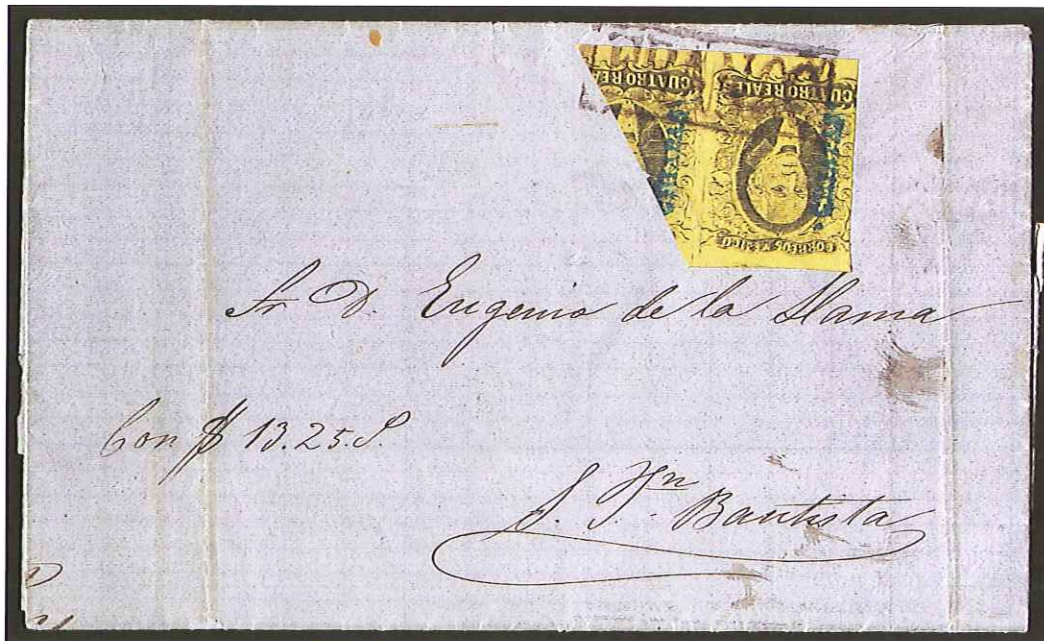 CUATRO REALES CUATRO REALES
CORREOS MEJICO
Sr D. Eugenio de la Llama
Con $ 13.25.
S. Jn Bautista